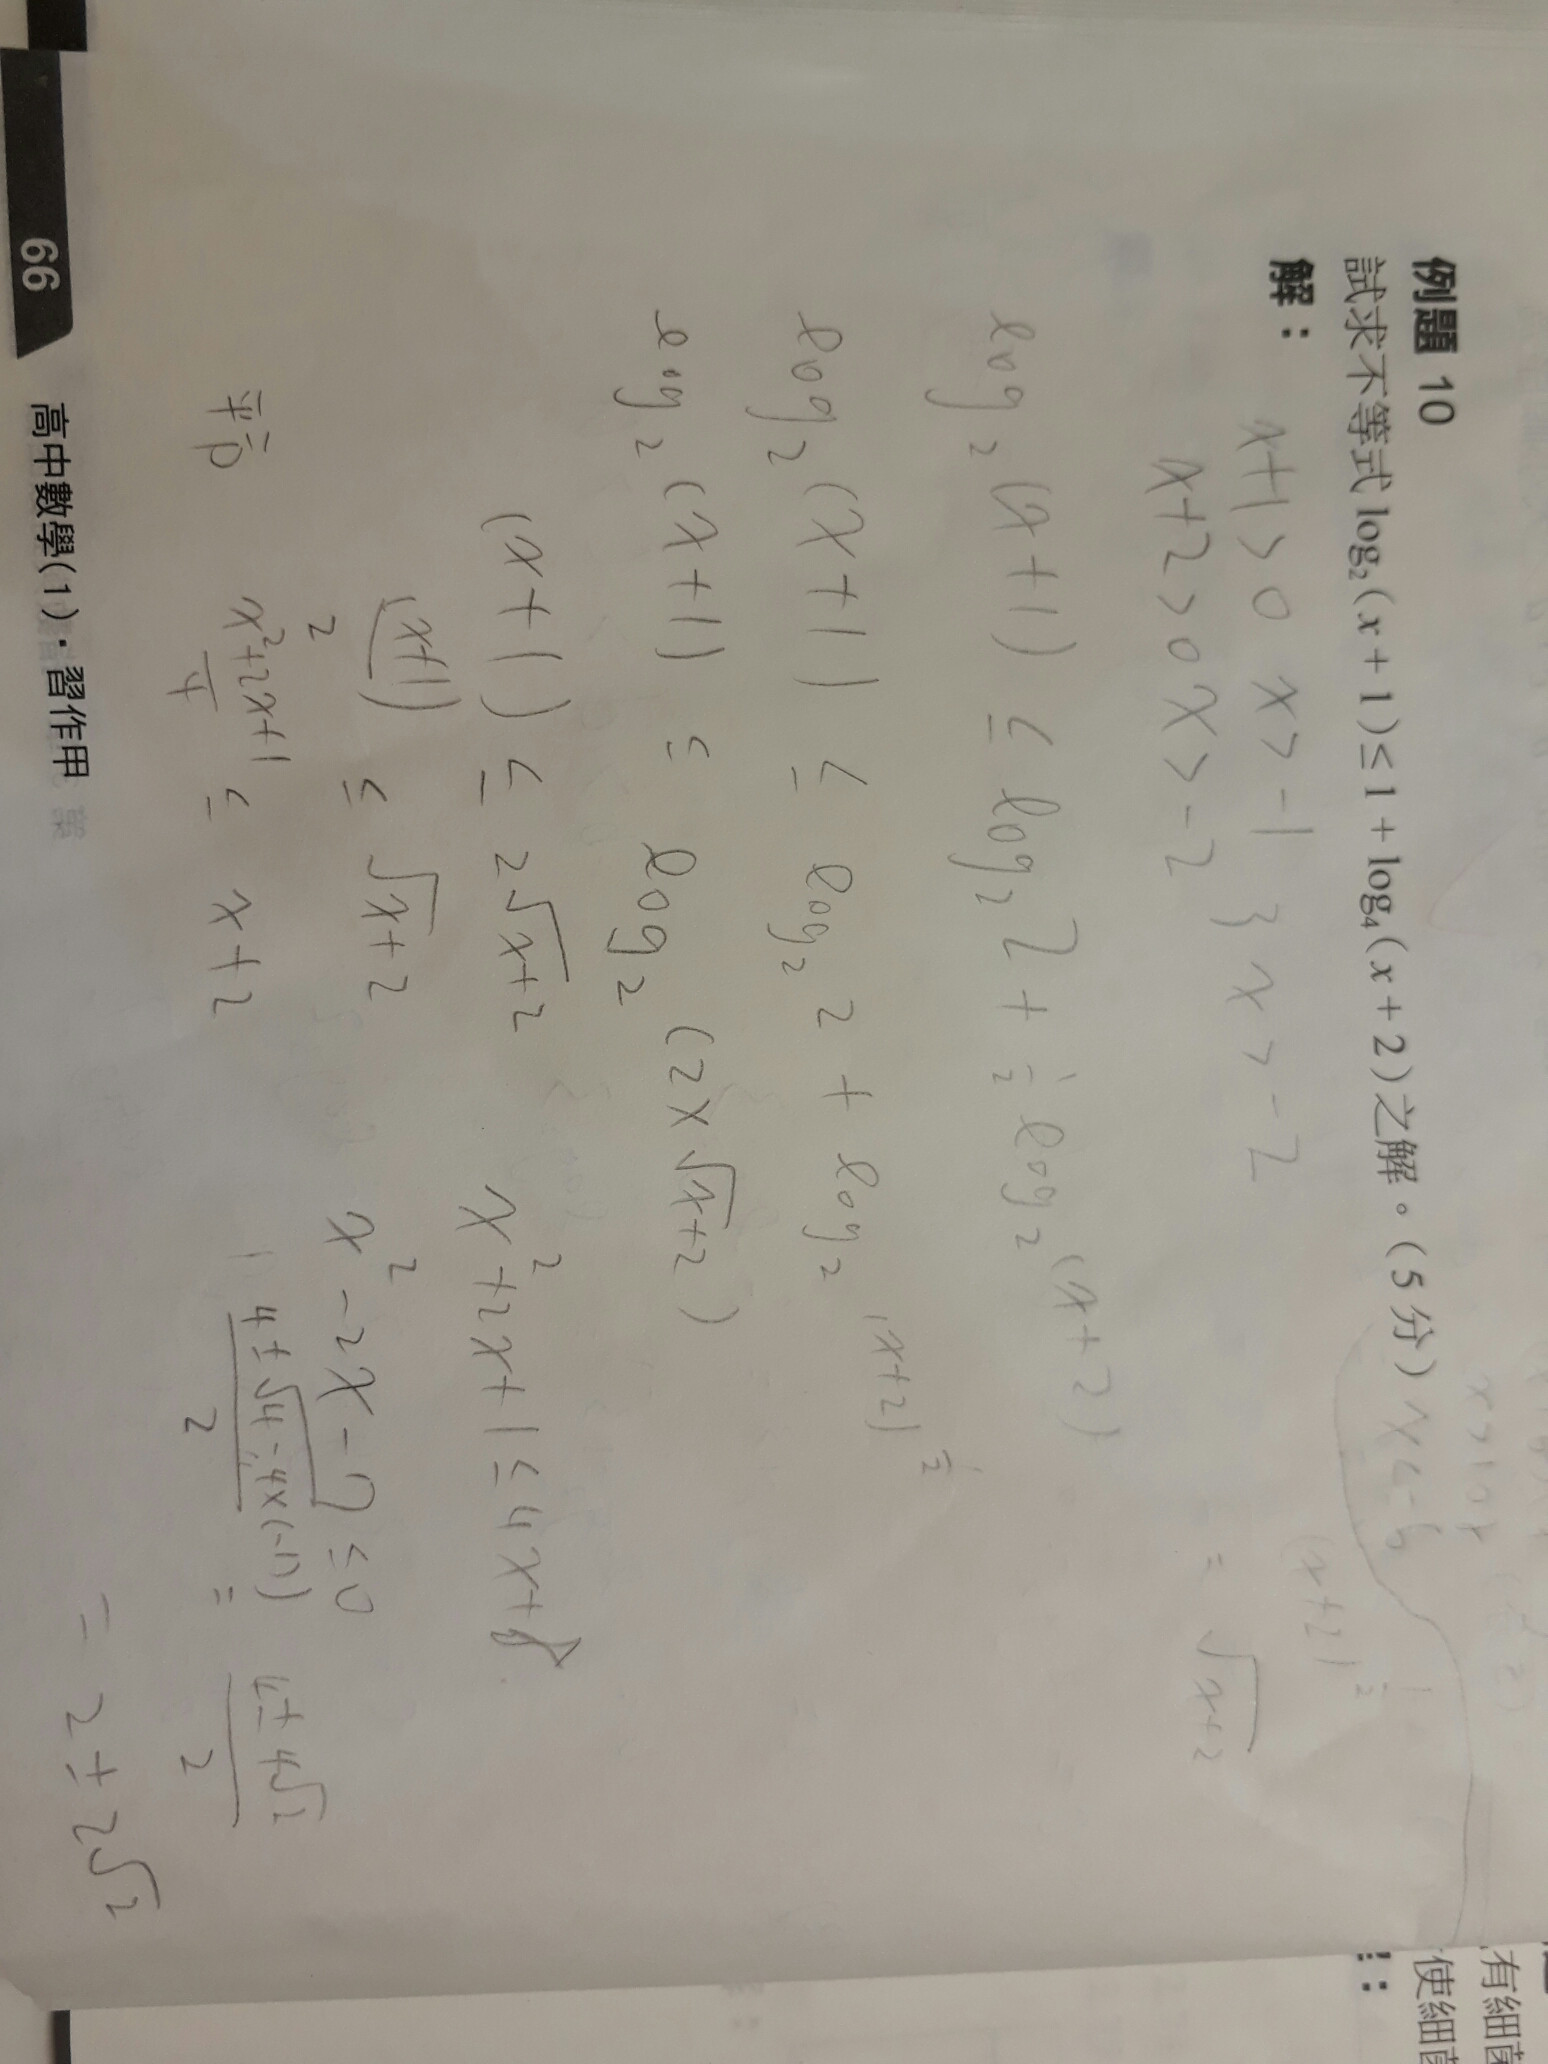 例題 10
試求不等式 log₂(x+1)≤1+log₄(x+2)之解。(5分)
解：
x+1>0 x>-1
x+2>0 x>-2 } x>-2
(x+2)^½
=√x+2
log₂(x+1) ≤ log₂2 + ½log₂(x+2)
log₂(x+1) ≤ log₂2 + log₂(x+2)^½
log₂(x+1) ≤ log₂(2×√x+2)
(x+1) ≤ 2√x+2
(x+1)/2 ≤ √x+2
平方 x²+2x+1/4 ≤ x+2
x²+2x+1≤4x+8
x²-2x-7≤0
=
=2±2√2
66 高中數學(1)‧習作用
有細菌
使細菌